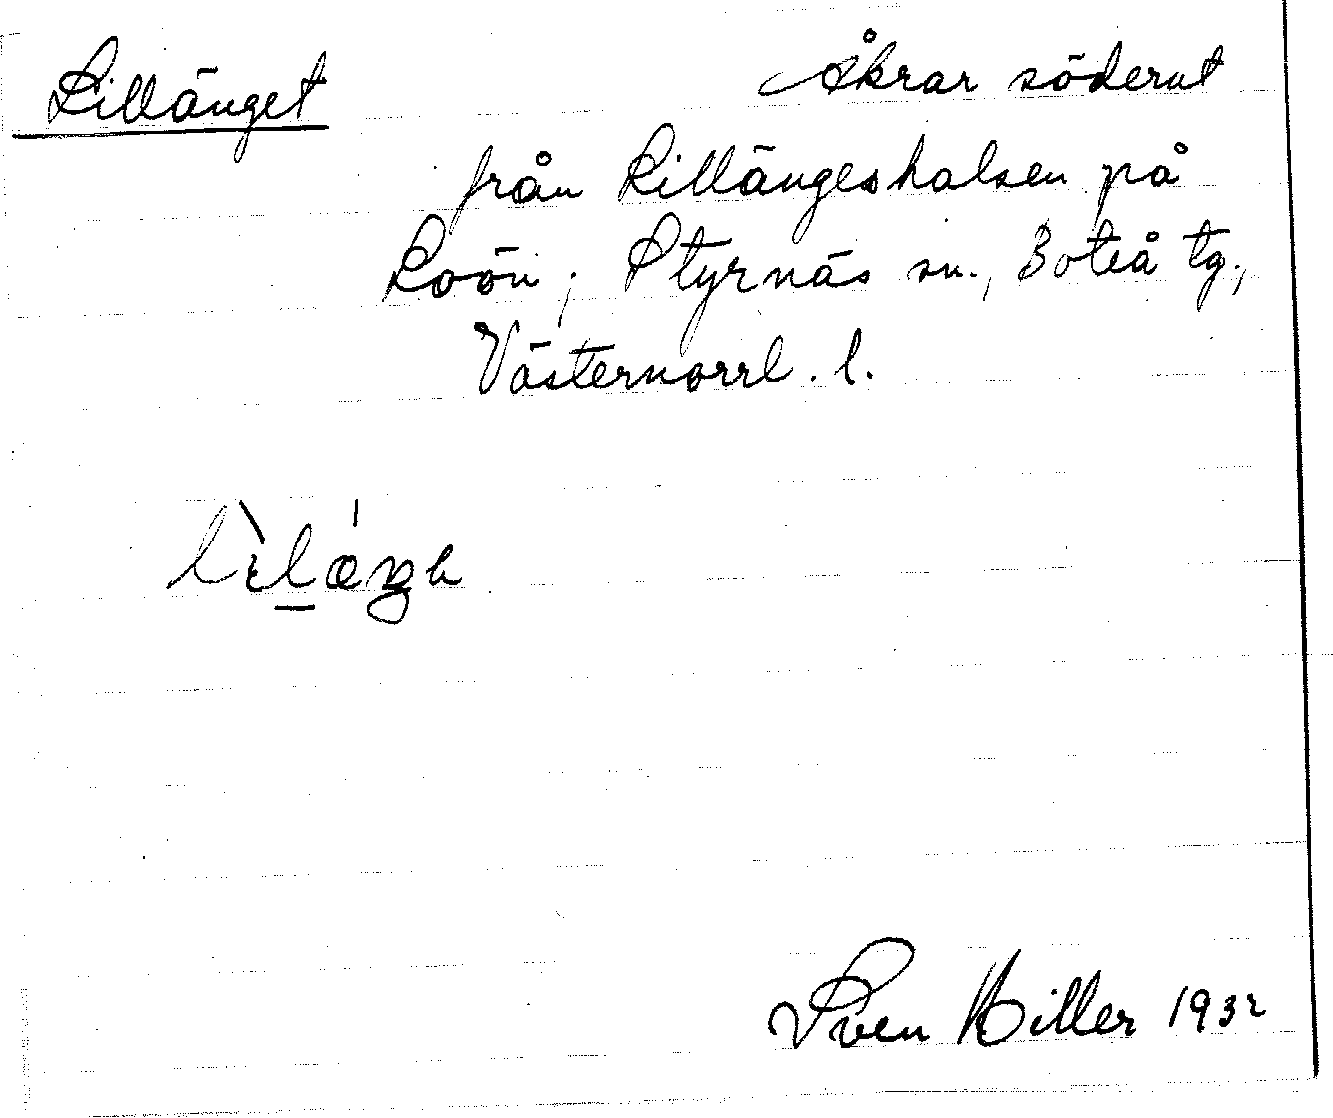 Lillänget
Åkrar söderut
från Lillängeshalsen på
Loön; Styrnäs sn., Boteå tg.,
Västernorrl. l.
Sven Hiller 1932